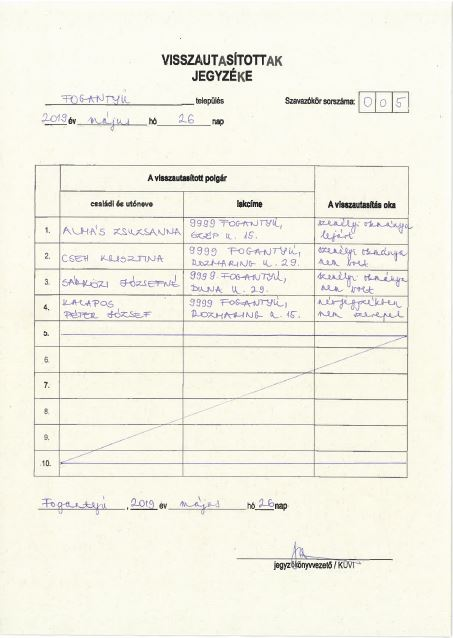 VISSZAUTASÍTOTTAK
JEGYZÉKE
FOGANTYÚ település Szavazókör sorszáma: 0 0 5
2019 év május hó 26 nap
A visszautasított polgár
családi és utóneve lakcíme A visszautasítás oka
1. ALMÁS ZSUZSANNA 9999 FOGANTYÚ, u. 15. személyi okmánya lejárt
2. CSEH KRISZTINA 9999 FOGANTYÚ, ROZMARING u. 29. személyi okmánya nem volt
3. SÁRKÖZI JÓZSEFNÉ 9999 FOGANTYÚ, DUNA u. 29. személyi okmánya nem volt
4. KALAPOS PÉTER JÓZSEF 9999 FOGANTYÚ, ROZMARING u. 15. névjegyzékben nem szerepel
5.
6.
7.
8.
9.
10.
Fogantyú, 2019 év május hó 26 nap
jegyzőkönyvvezető / KÜVI